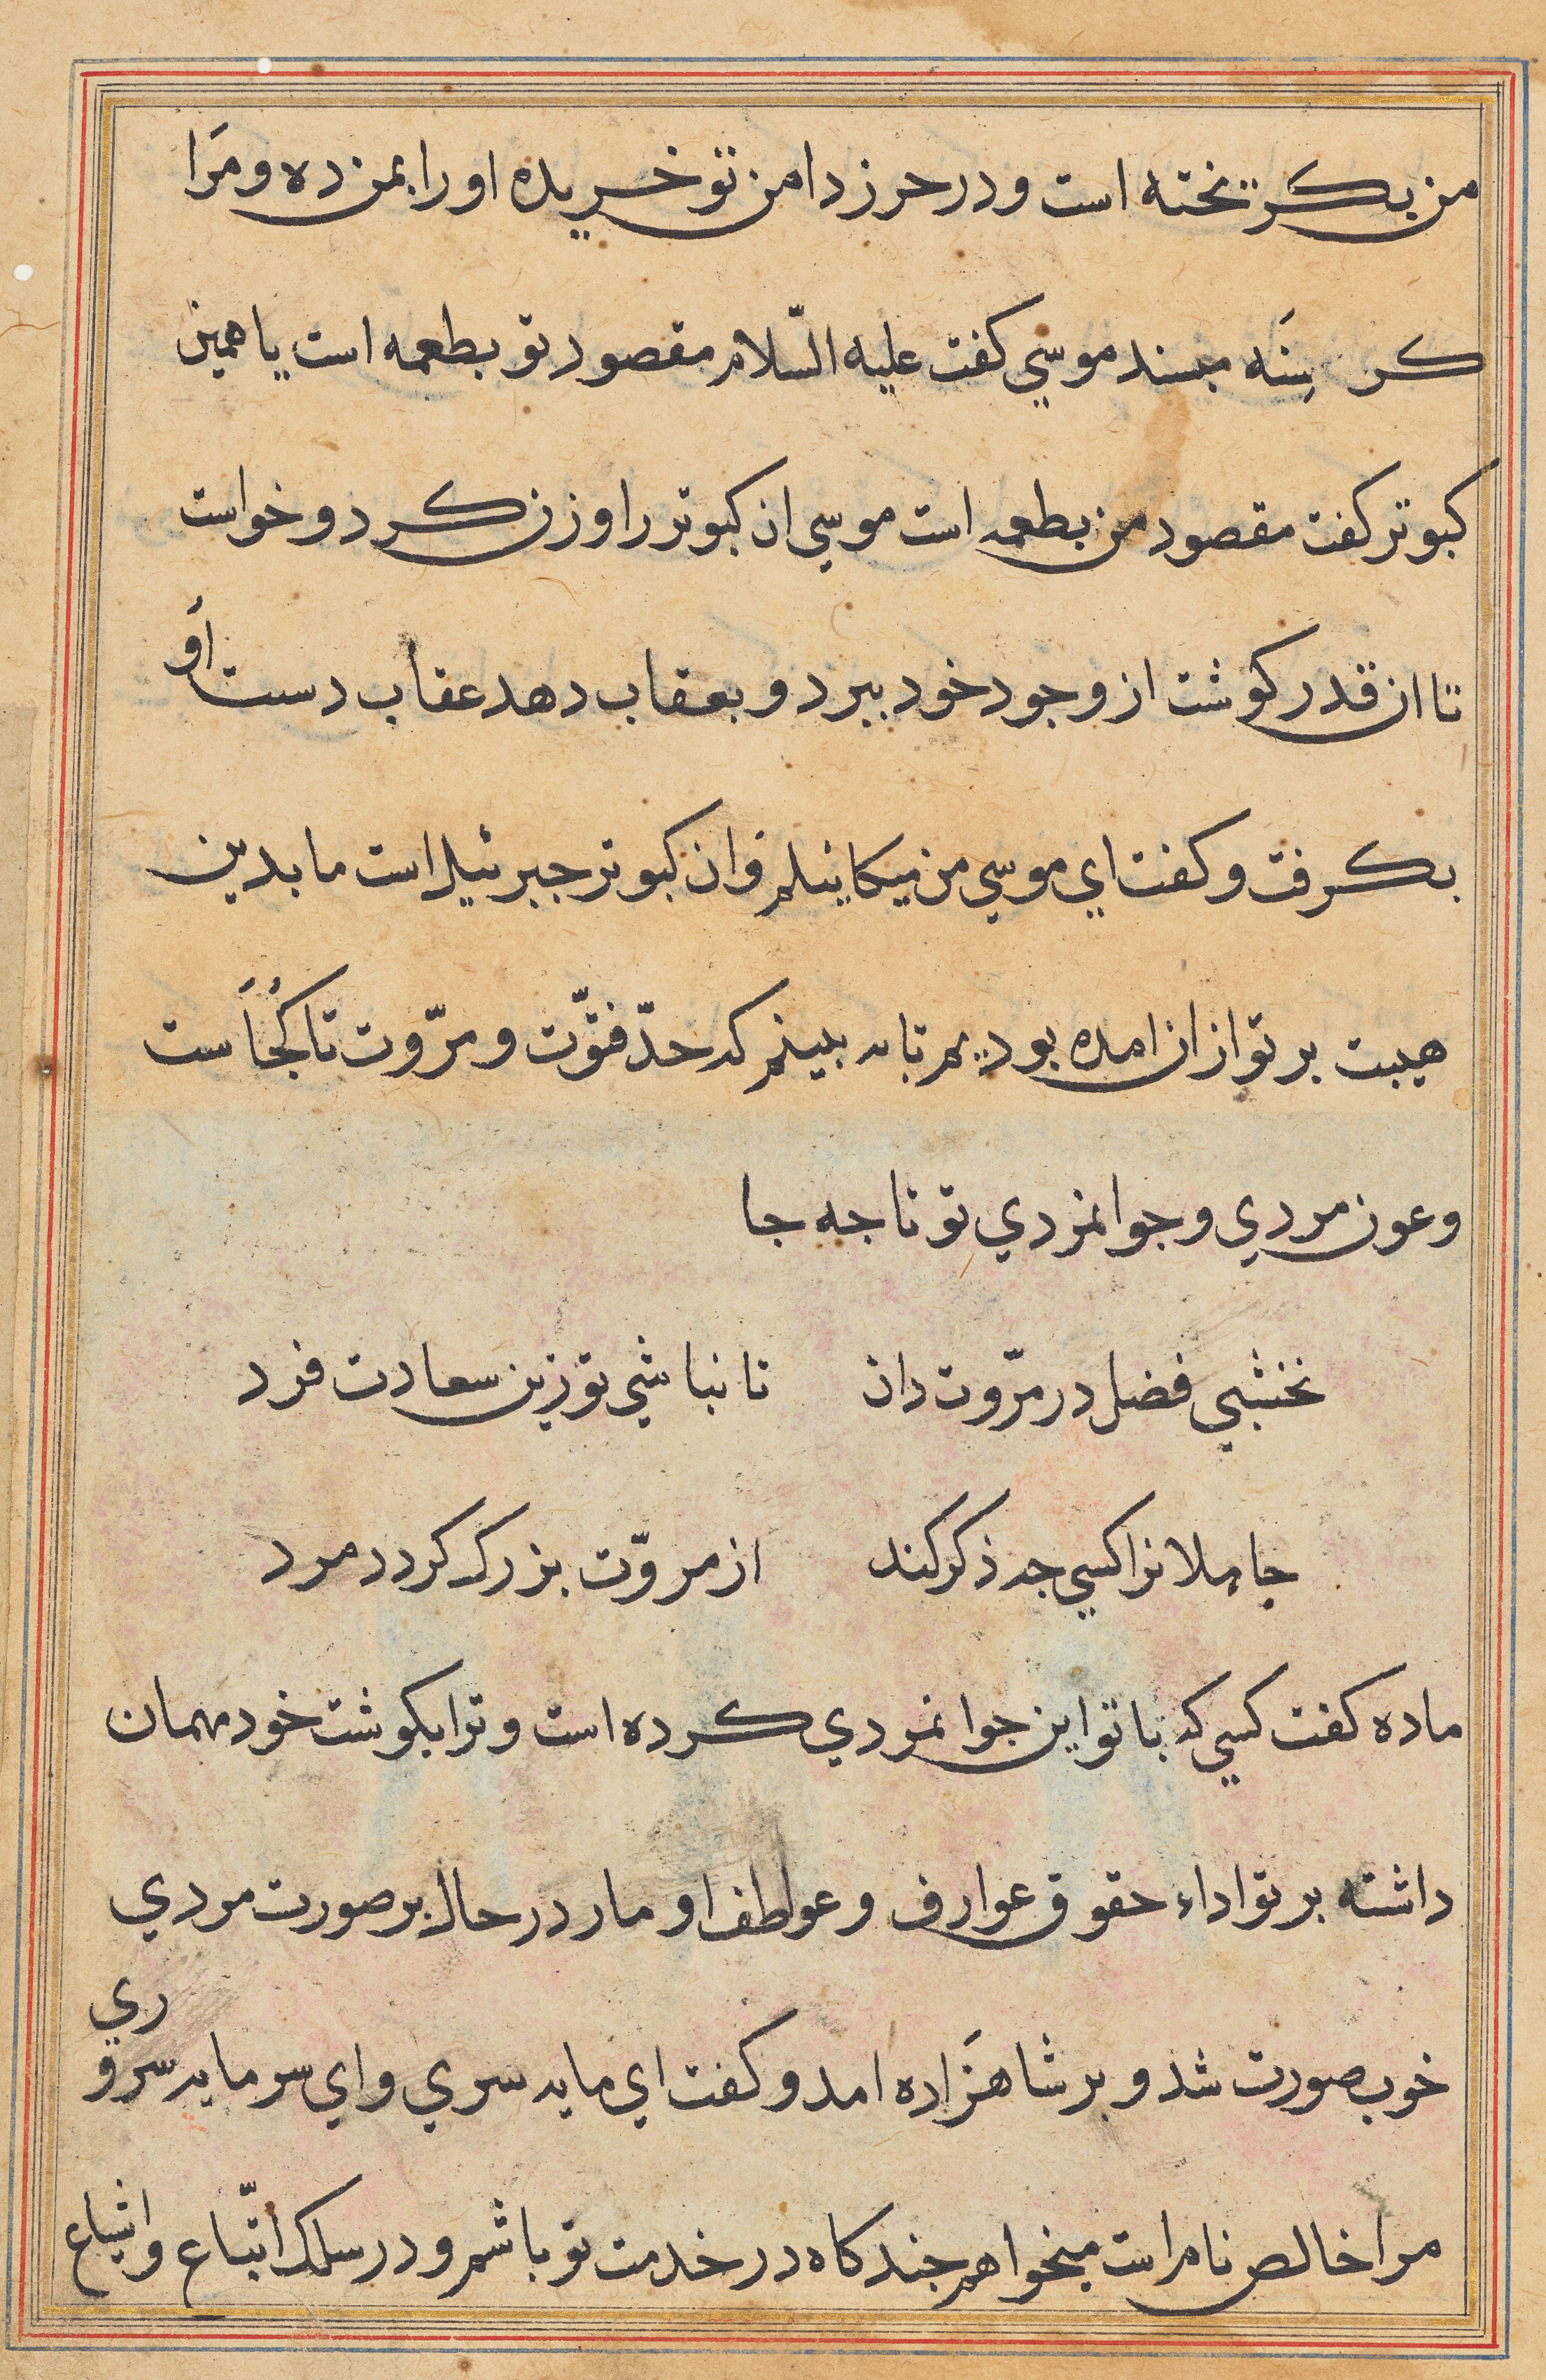 من بکریخته است و در حرز دامن تو خریده او را بمن ده و مَرا
کر سِنَه مپسند موسي کفت علیه السّلام مقصود تو بطعمه است یا همین
کبوتر کفت مقصود من بطعمه است موسي ان کبوتر را وزن کرد و خواست
تا ان قدر کوشت از وجود خود ببرد و بعقاب دهد عقاب دست اَو
بکرفت و کفت اي موسي من میکائیلم و ان کبوتر جبرئیل است ما بدین
هیبت بر تو از ان امده بودیم تا به بینم که حدّ فتوّت و مرّوت تا کُجاَست
و عون مردي و جوانمردي تو تا جه جا
نخشبي فضل در مرّوت دان تا نباشي تو زین سعادت فرد
جاملانرا کسي جه ذکر کند از مروّت بزرک کردد مرد
ماده کفت کسي که با تو این جوانمردي کرده است و ترا بکوشت خود مهمان
داشته بر تو اداء حقوق عوارف و عواطف او مار در حال بر صورت مردي
خوب صورت شد و بر شاهزَاده امد و کفت اي مایه سري و اي سرمایه سروري
مرا خالص نام است میخواهم جند کاه در خدمت تو باشم و در سلک اتّباع و اشیاع